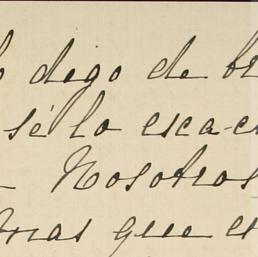 digo de
sé lo esca-
Nosotros
mas que